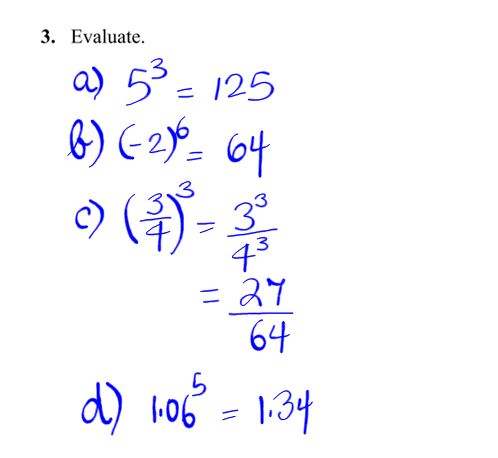 3. Evaluate.
a) 5³ = 125
b) (-2)⁶ = 64
c) (3/4)³ = 3³/4³
= 27/64
d) 1.06⁵ = 1.34